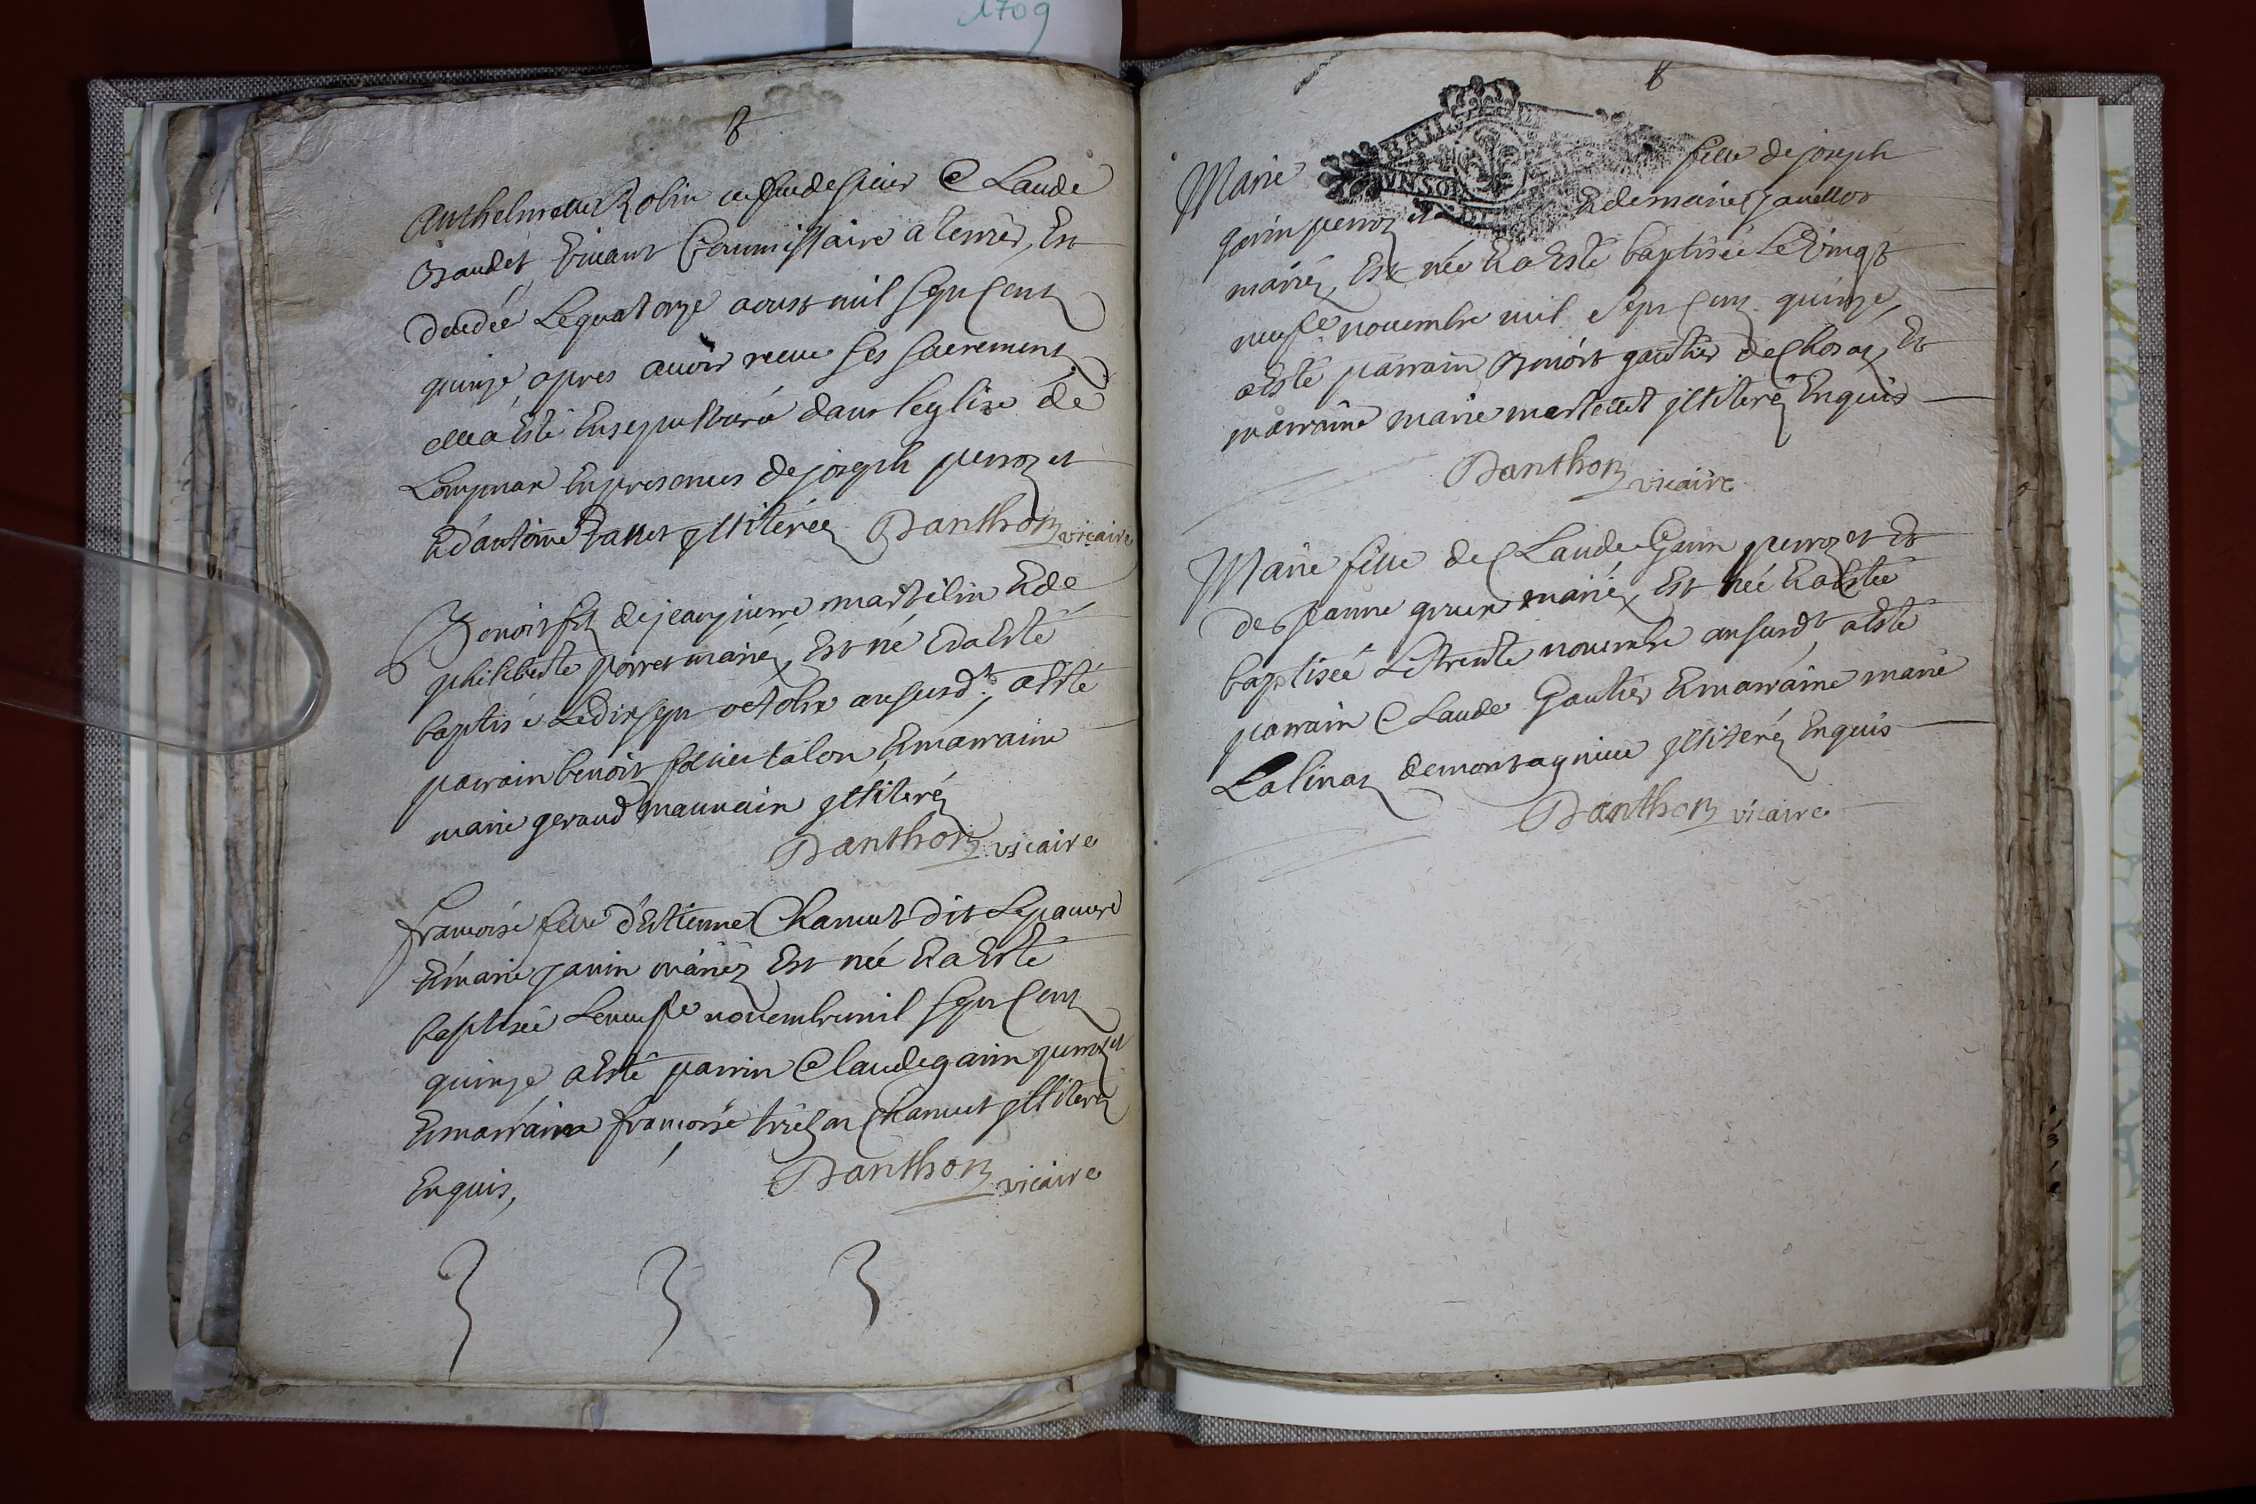 1709
8
Anthelmette Robin veufve de sieur Claude
Baudet vivant Commissaire a terrier, Est
decedée Le quatorze aoust mil sept Cent
quinze apres avoir receu ses sacrements
elle a Esté Ensepulturée dans leglise de
Lompnax En presences de joseph perrozet
Et d'antoine illiterés Danthon vicaire
Benoit fils de jean pierre martelin Et de
philiberte porret mariés, Est né Et a Esté
baptisé Le dix sept octobre an susdt, a Esté
parrain benoit talon, Et marraine
marie geraud illiterés
Danthon vicaire
françoise fille d'Estienne Chanut dit Le pauvre
Et marie janin mariés Est née Et a Esté
baptisée Le neufe novembre mil sept Cent
quinze a Esté parrin Claude garin perrozet
Et marraine françoise Chanut illiterés
Enquis,
Danthon vicaire
8
Marie fille de joseph
garin perrozet Et de marie
mariés, Est née Et a Esté baptisée Le vingt
neufe novembre mil sept Cent quinze,
a Esté parrain Benoit gautier de Et
marraine marie martellet illiterés Enquis
Danthon vicaire
Marie fille de Claude Garin perrozet Et
de jeanne mariés, Est née Et a Estée
baptisée Le trente novembre an susdt, a Esté
parrain Claude Gautier Et marraine marie
Lalinaz de montagnieu illiterés Enquis
Danthon vicaire